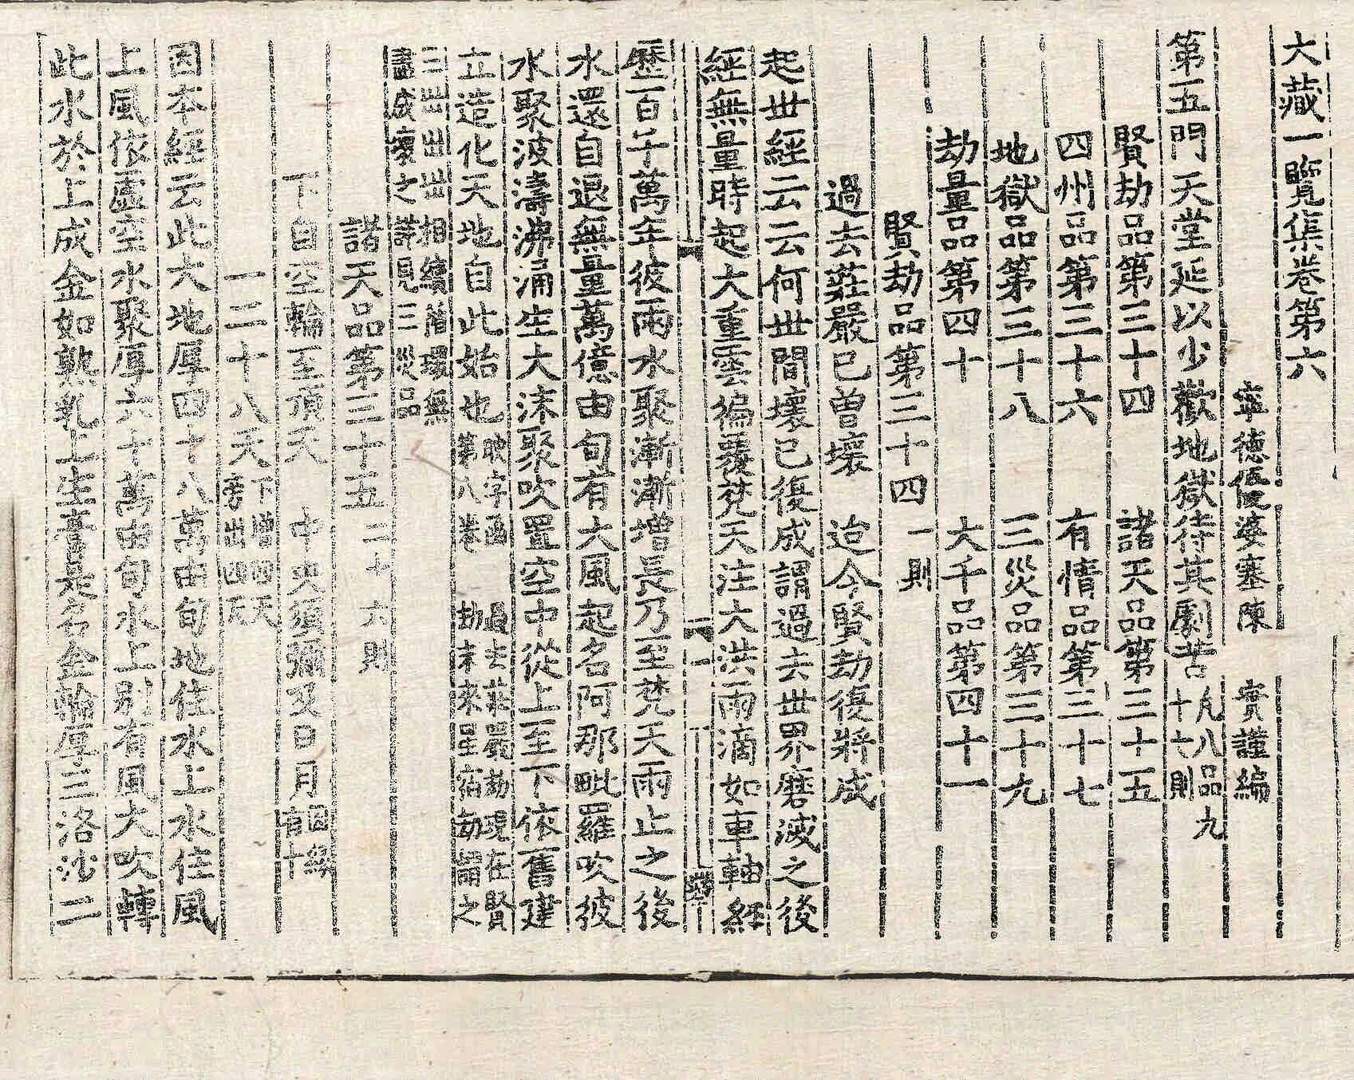 大藏一覽集卷第六
寧德優婆塞陳 實謹編
第五門天堂延以少歡地獄待其劇苦 凡八品九十六則
賢劫品第三十四 諸天品第三十五
四州品第三十六 有情品第三十七
地獄品第三十八 三災品第三十九
劫量品第四十 大千品第四十一
賢劫品第三十四 一則
過去莊嚴已曾壞 迨今賢劫復將成
起世經云云何世間壞已復成謂過去世界磨滅之後
經無量時起大重雲徧覆梵天注大洪雨滴如車軸經
歷百千萬年彼雨水聚漸漸增長乃至梵天雨止之後
水還自退無量萬億由旬有大風起名阿那毗羅吹彼
水聚波濤沸涌生大沫聚吹置空中從上至下依舊建
立造化天地自此始也 映字函第八卷 過去莊嚴劫現在賢劫未來星宿劫謂之
三世出世相續循環無
盡成壞之詳見三災品
諸天品第三十五 二十六則
下自空輪至頂天 中央須彌及日月 因緣有十
一二十八天 下增四天旁出四天
因本經云此大地厚四十八萬由旬地住水上水住風
上風依虛空水聚厚六十萬由旬水上別有風大吹轉
此水於上成金如熟乳上生膏是名金輪厚三洛沙二